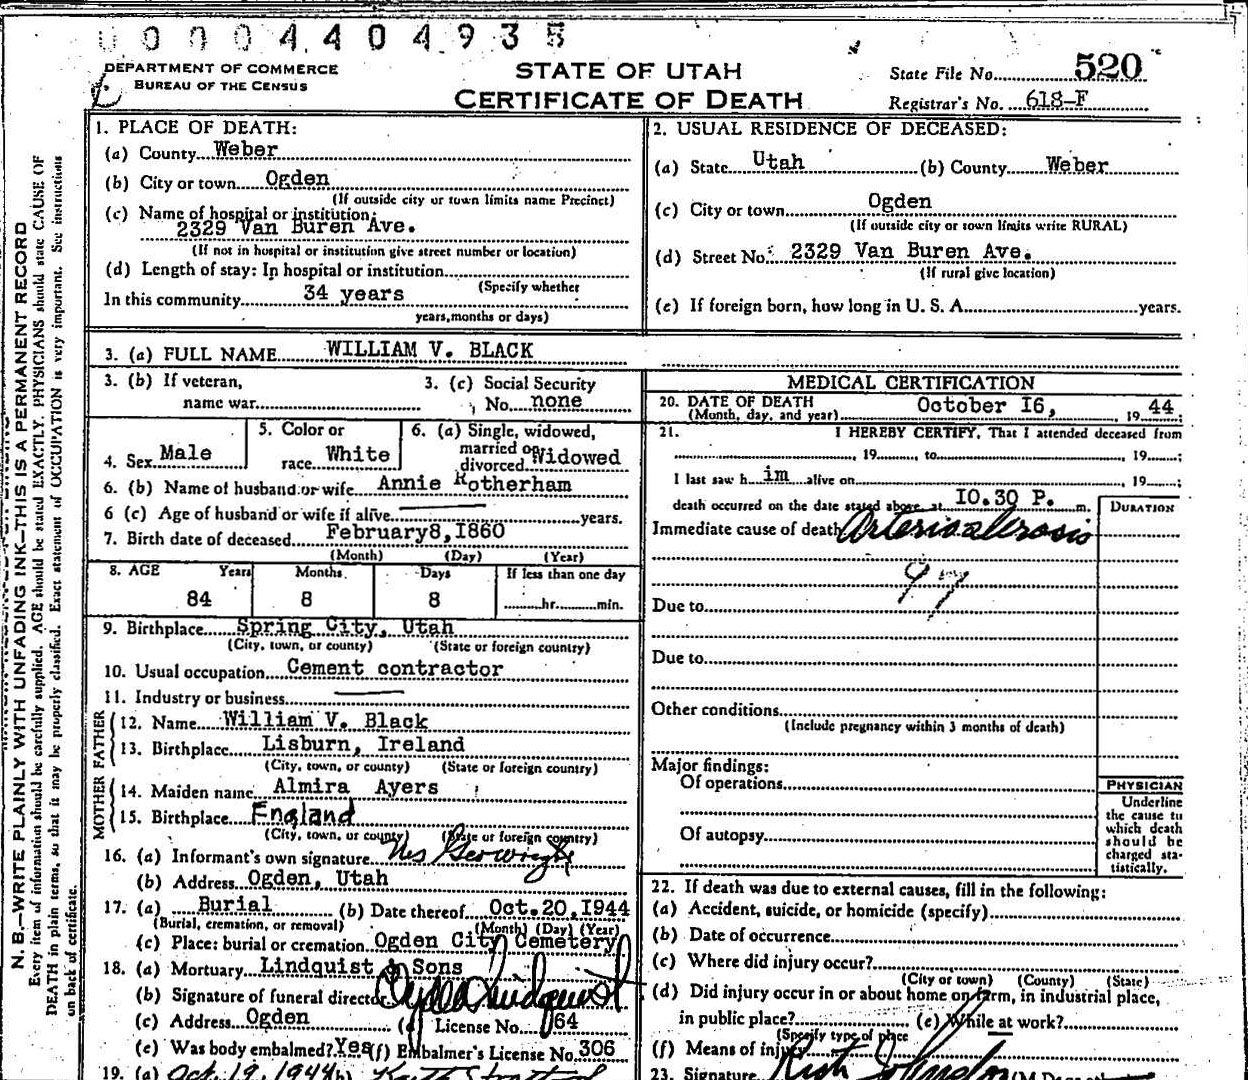 0 0 0 0 4 4 0 4 9 3 5
DEPARTMENT OF COMMERCE
BUREAU OF THE CENSUS
STATE OF UTAH
CERTIFICATE OF DEATH
State File No. 520
Registrar's No. 618-F
N. B.—WRITE PLAINLY WITH UNFADING INK—THIS IS A PERMANENT RECORD
Every item of information should be carefully supplied. AGE should be stated EXACTLY. PHYSICIANS should state CAUSE OF
DEATH in plain terms, so that it may be properly classified. Exact statement of OCCUPATION is very important. See instructions
on back of certificate.
1. PLACE OF DEATH:
(a) County Weber
(b) City or town Ogden
(If outside city or town limits name Precinct)
(c) Name of hospital or institution:
2329 Van Buren Ave.
(If not in hospital or institution give street number or location)
(d) Length of stay: In hospital or institution
(Specify whether
In this community 34 years
years, months or days)
2. USUAL RESIDENCE OF DECEASED:
(a) State Utah (b) County Weber
(c) City or town Ogden
(If outside city or town limits write RURAL)
(d) Street No. 2329 Van Buren Ave.
(If rural give location)
(e) If foreign born, how long in U. S. A. years.
3. (a) FULL NAME WILLIAM V. BLACK
3. (b) If veteran,
name war
3. (c) Social Security
No. none
4. Sex Male
5. Color or
race White
6. (a) Single, widowed,
married or
divorced Widowed
6. (b) Name of husband or wife Annie Rotherham
6 (c) Age of husband or wife if alive years.
7. Birth date of deceased February 8, I860
(Month) (Day) (Year)
8. AGE Years Months Days If less than one day
84 8 8 hr. min.
9. Birthplace Spring City, Utah
(City, town, or county) (State or foreign country)
10. Usual occupation Cement contractor
11. Industry or business
FATHER
12. Name William V. Black
13. Birthplace Lisburn, Ireland
(City, town, or county) (State or foreign country)
MOTHER
14. Maiden name Almira Ayers
15. Birthplace England
(City, town, or county) (State or foreign country)
16. (a) Informant's own signature
(b) Address Ogden, Utah
17. (a) Burial (b) Date thereof Oct. 20, I944
(Burial, cremation, or removal) (Month) (Day) (Year)
(c) Place: burial or cremation Ogden City Cemetery
18. (a) Mortuary Lindquist & Sons
(b) Signature of funeral director Lindquist
(c) Address Ogden (d) License No. 64
(e) Was body embalmed? Yes (f) Embalmer's License No. 306
19. (a) Oct. 19, 1944 (b)
MEDICAL CERTIFICATION
20. DATE OF DEATH
(Month, day, and year) October I6, 19 44
21. I HEREBY CERTIFY, That I attended deceased from
, 19 , to , 19 ;
I last saw h im alive on , 19 ;
death occurred on the date stated above, at I0.30 P. m.
DURATION
Immediate cause of death Arteriosclerosis
97
Due to
Due to
Other conditions
(Include pregnancy within 3 months of death)
Major findings:
Of operations
Of autopsy
PHYSICIAN
Underline
the cause to
which death
should be
charged sta-
tistically.
22. If death was due to external causes, fill in the following:
(a) Accident, suicide, or homicide (specify)
(b) Date of occurrence
(c) Where did injury occur?
(City or town) (County) (State)
(d) Did injury occur in or about home on farm, in industrial place,
in public place? (e) While at work?
(Specify type of place
(f) Means of injury
23. Signature